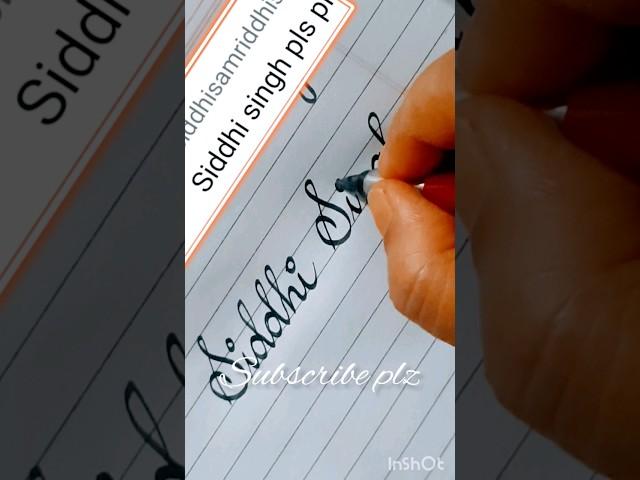 ddhisamriddhis
Siddhi singh pls pr
Siddhi Singh
Subscribe plz
InShOt
Siddh